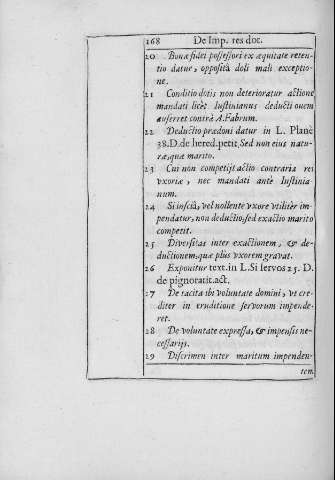 168 De Imp. res doc.
20 Bonæ fidei possessori ex æquitate reten-
tio datur, opposità doli mali exceptio-
ne.
21 Conditio dotis non deterioratur actione
mandati licèt Iustinianus deducti onem
auferret contrà A.Fabrum.
22 Deductio prædoni datur in L. Planè
38.D.de hered.petit, Sed non eius natu-
ræ, quæ marito.
23 Cui non competijt actio contraria rei
vxoriæ, nec mandati antè Iustinia-
num.
24 Si insciâ, vel nollente vxore vtilitèr im-
pendatur, non deductio, sed exactio marito
competit.
25 Diversitas inter exactionem, & de-
ductionem, quæ plùs vxorem gravat.
26 Exponitur text. in L.Si servos 25. D.
de pignoratit.act.
27 De tacita ibi voluntate domini, vt cre-
diter in eruditione servorum impende-
ret.
28 De voluntate expressa, & impensis ne-
cessarijs.
29 Discrimen inter maritum impenden-
tem.